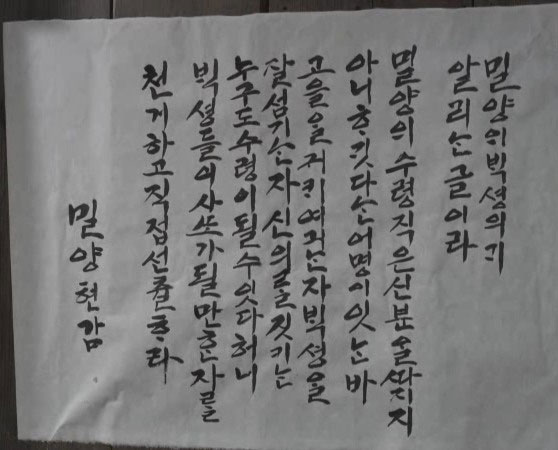 밀양의빅셩의기
알리는글이라
밀양의수령직은신분을ᄯᅡ지지
아니ᄒᆞ깃다는어명이잇는바
고을을귀키여기는자빅셩을
잘섬기는자신의를짓키는
누구도수령이될수잇다허니
빅셩들의사ᄯᅩ가될만ᄒᆞᆫ자를
천거하고직접선츌ᄒᆞ라
밀양현감